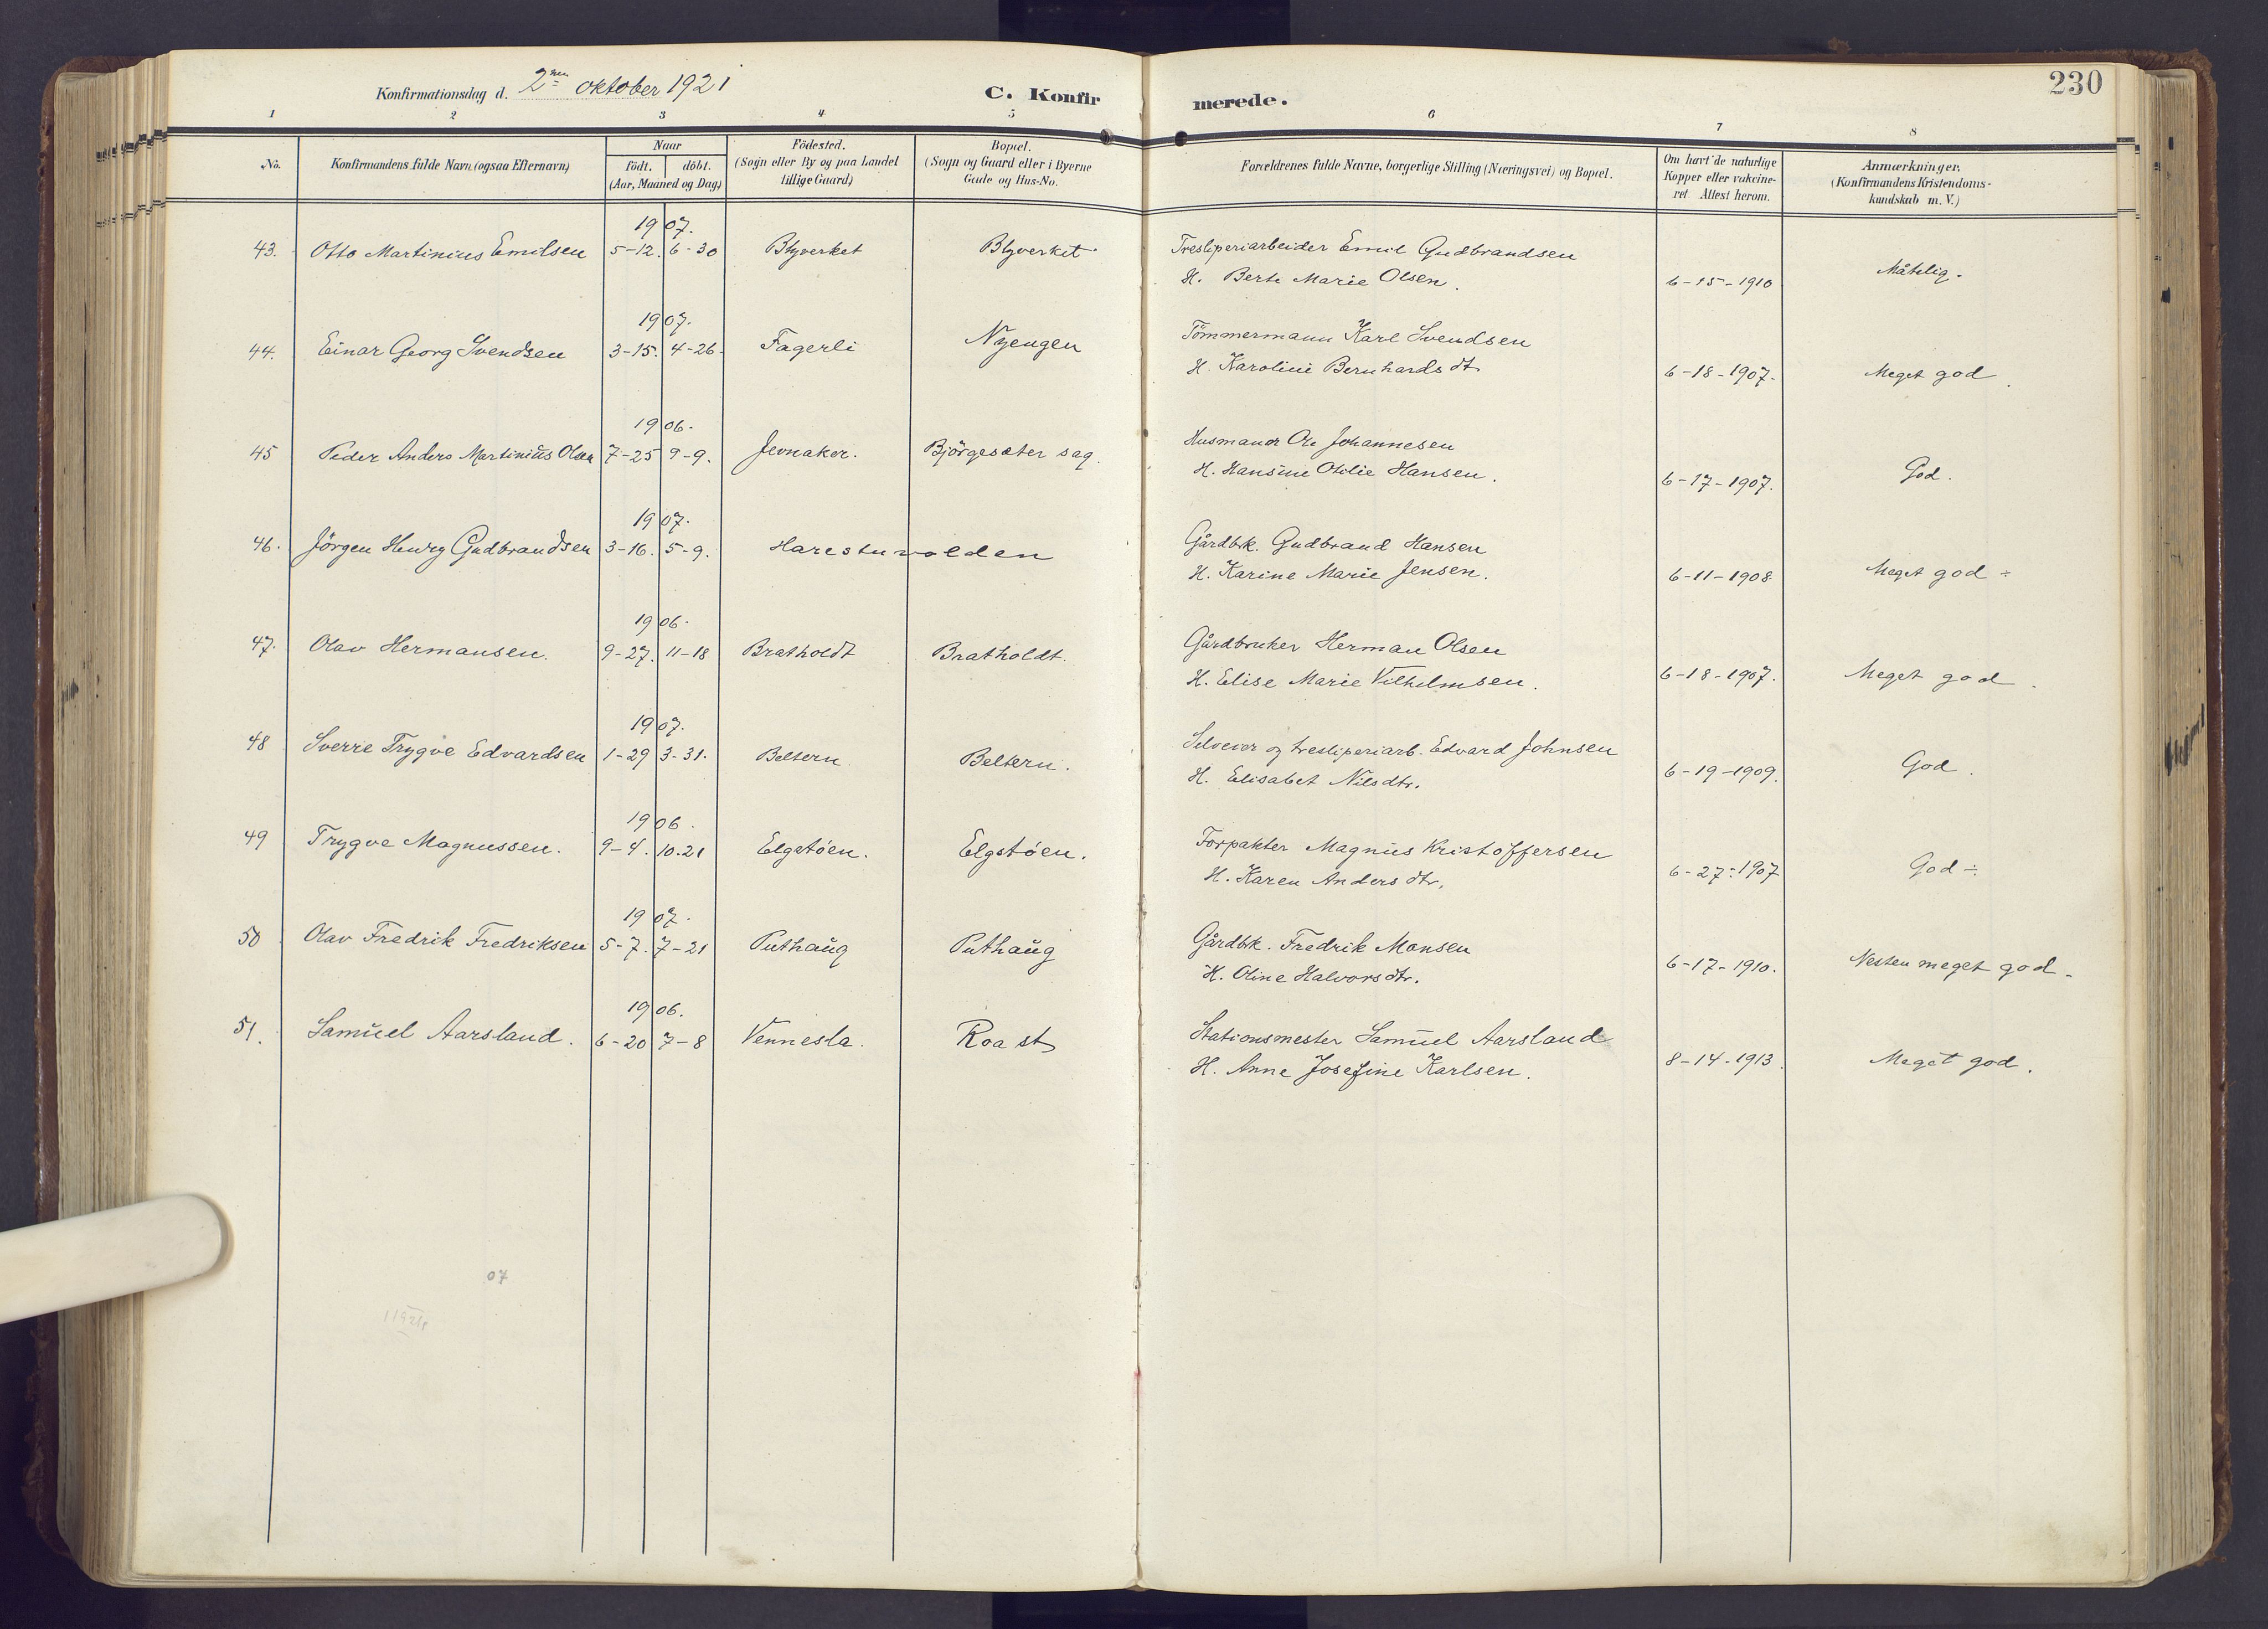 230
Konfirmationsdag d. 2nen oktober 1921
C. Konfirmerede.
1 2 3 4 5 6 7 8
No. Konfirmandens fulde Navn (ogsaa Efternavn) Naar født. døbt. (Aar, Maaned og Dag) Fødested. (Sogn eller By og paa Landet tillige Gaard) Bopæl. (Sogn og Gaard eller i Byerne Gade og Hus-No. Forældrenes fulde Navne, borgerlige Stilling (Næringsvei) og Bopæl. Om havt de naturlige Kopper eller vakcineret Attest herom. Anmærkninger. (Konfirmandens Kristendomskundskab m. V.)
1907.
43. Otto Martinius Emilsen 5-12. 6-30 Blyverket Blyverket Tresliperiarbeider Emil Gudbrandsen
H. Berte Marie Olsen. 6-15-1910 Måtelig.
1907.
44. Einar Georg Svendsen 3-15. 4-26. Fagerli Nyengen Tömmermann Karl Svendsen
H. Karoline Bernhardsdt. 6-18-1907. Meget god.
1906.
45 Peder Anders Martinius Olsen 7-25 9-9. Jevnaker. Björgesæter sag. Husmand Ole Johannesen
H. Hansine Otilie Hansen. 6-17-1907. God.
1907.
46. Jörgen Henry Gudbrandsen 3-16. 5-9. Harestuvolden Gårdbk. Gudbrand Hansen
H. Karine Marie Jensen. 6-11-1908. Meget god ÷
1906.
47. Olav Hermansen. 9-27. 11-18 Bratholdt Bratholdt. Gårdbruker Herman Olsen
H. Elise Marie Vilhelmsen. 6-18-1907. Meget god.
1907.
48 Sverre Trygve Edvardsen 1-29 3-31. Beltern Beltern. Selveier og tresliperiarb. Edvard Johnsen
H. Elisabet Nilsdtr. 6-19-1909. God.
1906.
49 Trygve Magnussen. 9-4. 10.21 Elgstöen. Elgstöen. Forpakter Magnus Kristoffersen
H. Karen Andersdtr. 6-27-1907 God ÷
1907.
50 Olav Fredrik Fredriksen 5-7. 7-21 Puthaug Puthaug Gårdbk. Fredrik Monsen
H. Oline Halvorsdtr. 6-17-1910. Nesten meget god.
1906.
51. Samuel Aarsland. 6-20 7-8 Vennesla. Roa st Stationsmester Samuel Aarsland
H. Anne Josefine Karlsen. 8-14-1913. Meget god.
07